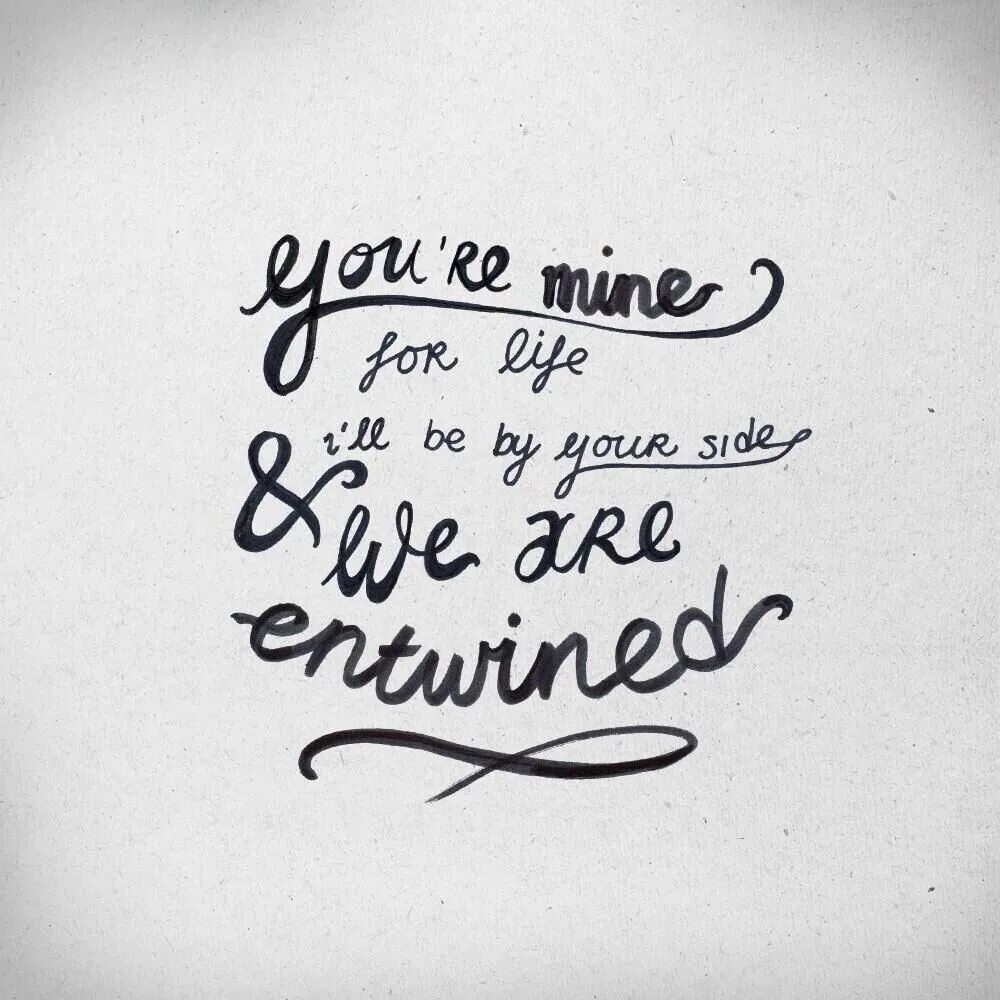 you're mine
for life
i'll be by your side
& we are
entwined